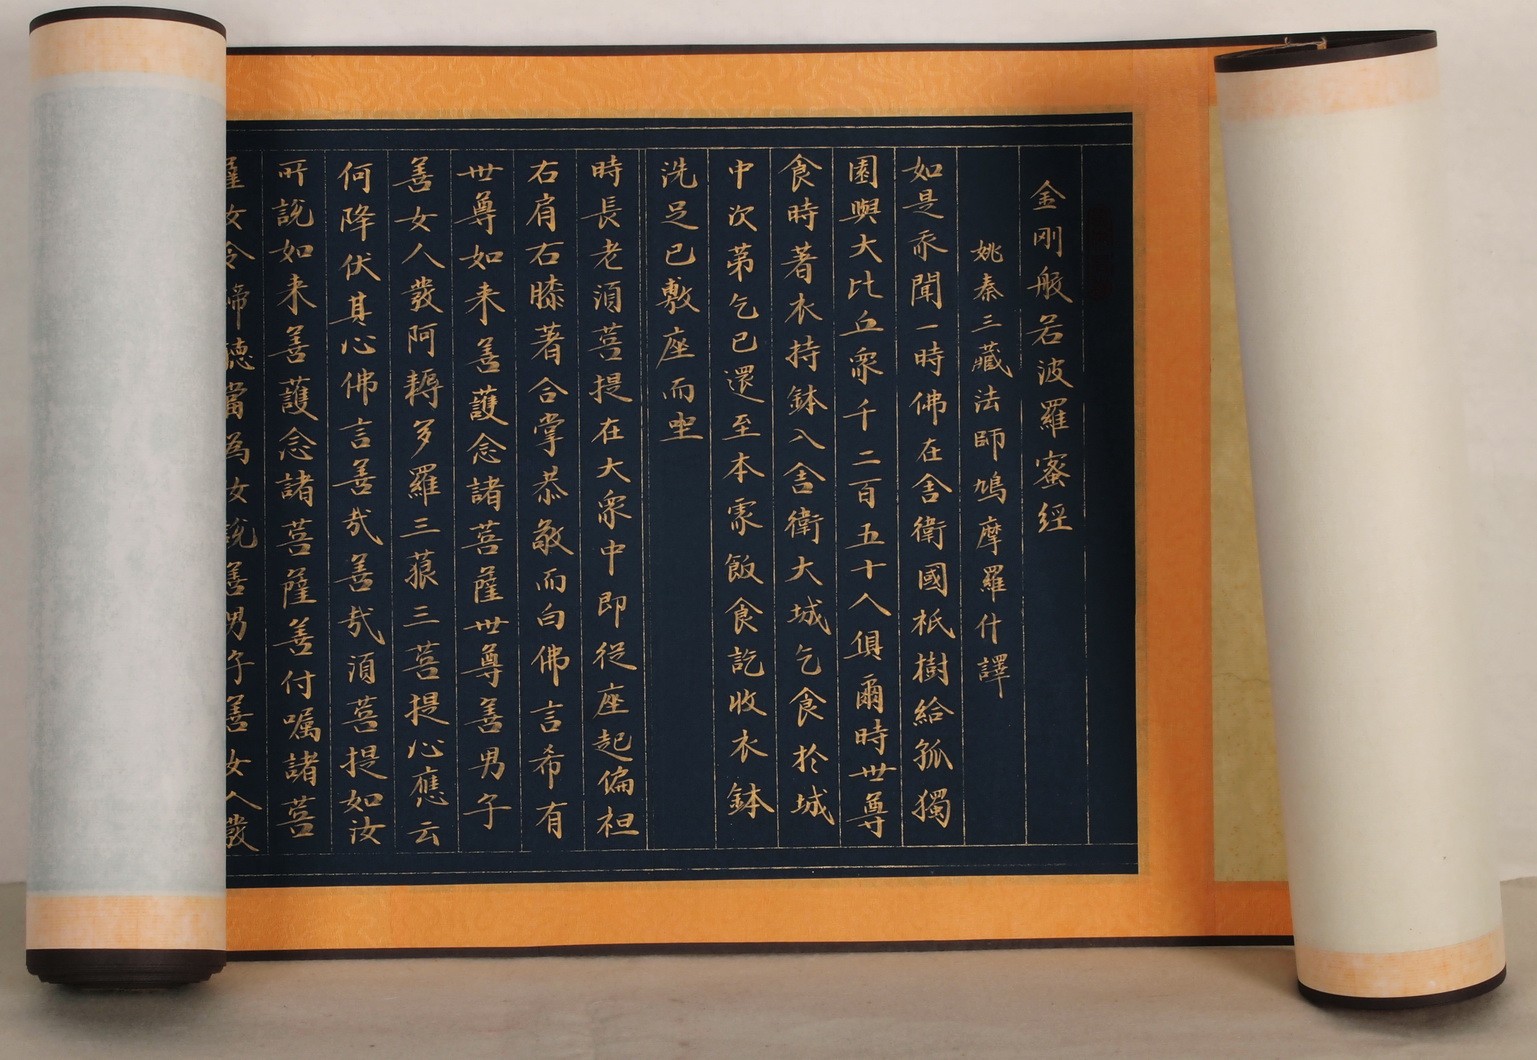 金剛般若波羅蜜經
姚秦三藏法師鳩摩羅什譯
如是我聞一時佛在舍衛國祇樹給孤獨
園與大比丘眾千二百五十人俱爾時世尊
食時著衣持鉢入舍衛大城乞食於城
中次第乞已還至本處飯食訖收衣鉢
洗足已敷座而坐
時長老須菩提在大眾中即從座起偏袒
右肩右膝著合掌恭敬而白佛言希有
世尊如来善護念諸菩薩世尊善男子
善女人發阿耨多羅三藐三菩提心應云
何降伏其心佛言善哉善哉須菩提如汝
所說如来善護念諸菩薩善付囑諸菩
薩女今諦聽當為女說善男子善女人發